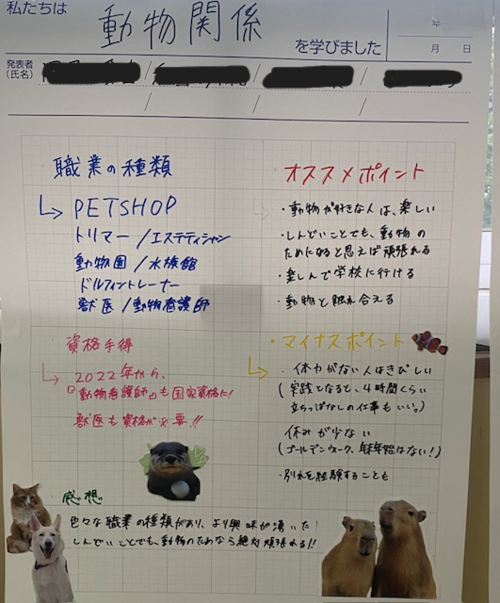 私たちは
動物関係
を学びました
年
月 日
発表者
(氏名)
職業の種類
↳ PETSHOP
トリマー/エステティシャン
動物園/水族館
ドルフィントレーナー
獣医/動物看護師
オススメポイント
・動物が好きな人は、楽しい
・しんどいことでも、動物の
ためになると思えば頑張れる
・楽しんで学校に行ける
・動物と触れ合える
資格手得
↳ 2022年から、
「動物看護師」も国家資格に!
獣医も資格が必要!!
・マイナスポイント
↳ ・体力がない人はきびしい
(実践となると、4時間くらい
立ちっぱなしの仕事も
休みが少ない
(ゴールデンウィーク、年末年始はない!)
・別れを経験することも
感想
色々な職業の種類があり、より興味が湧いた!
しんどいことでも、動物のためなら絶対頑張れる!!